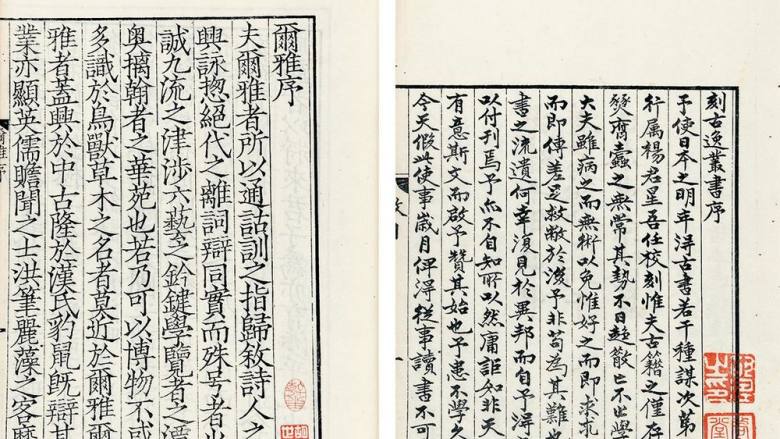 刻古逸叢書序
予使日本之明年得古書若干種謀次第
行属楊君星吾任校刻惟夫古籍之僅存
蠹之無常其勢不日趍散亡不出學
大夫雖病之而無術以免惟好之而即求
而即傳差足救敝於後予非苟為其難也
書之流遺何幸復見於異邦而自予得
以付刊焉予亦不自知所以然庸詎知非天
有意斯文而啟予贊其始也予患不學久
今天假此使事歲月俾得從事讀書不可
爾雅序
夫爾雅者所以通詁訓之指歸敘詩人之
興詠揔絕代之離詞辯同實而殊号者也
誠九流之津涉六藝之鈐鍵學覽者之潭
奧摛翰者之華苑也若乃可以博物不惑
多識於鳥獸草木之名者莫近於爾雅爾
雅者蓋興於中古隆於漢氏豹鼠既辯其
業亦顯英儒贍聞之士洪筆麗藻之客靡